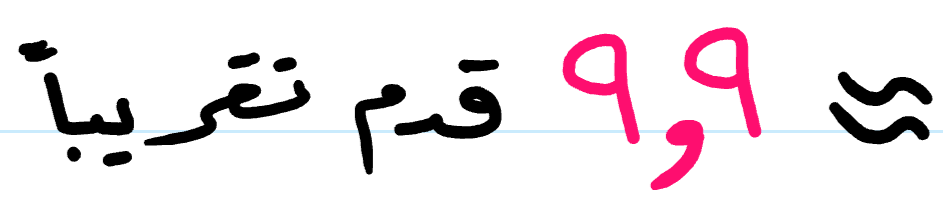 ≈ ٩,٩ قدم تقريباً